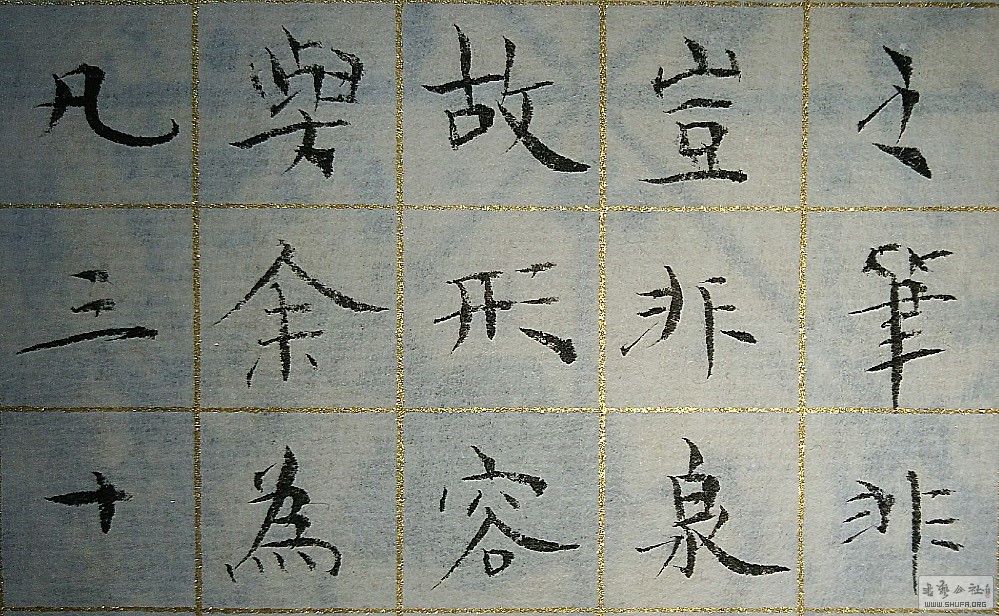 之筆非
豈非泉
故形容
與余為
凡三十
書藝公社
WWW.SHUFA.ORG